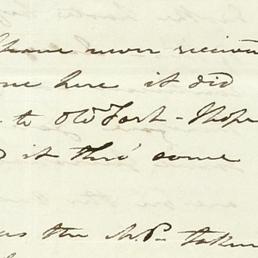 have never receive
one here it did
to Old Fort - Hope
it thro' some
the M.P. taken